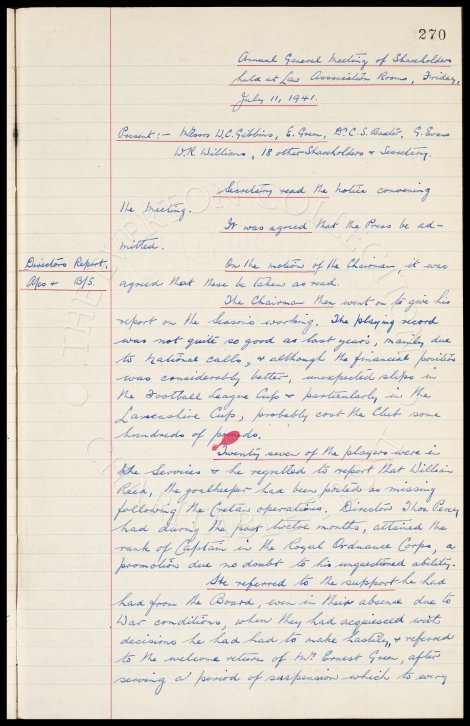 270
Annual General Meeting of Shareholders
held at Law Association Rooms, Friday,
July 11, 1941.
Present:- Messrs W.C. Gibbins, E. Green, Dr C.S. Baxter, G. Evans
W.R. Williams, 18 other Shareholders & Secretary.
Secretary read the notice convening
the meeting.
It was agreed that the Press be ad-
mitted.
Directors Report,
A/cs & B/S.
On the motion of the Chairman, it was
agreed that these be taken as read.
The Chairman then went on to give his
report on the Seasons working. The playing record
was not quite so good as last year's, mainly due
to National calls, & although the financial position
was considerably better, unexpected slips in
the Football League Cup & particularly in the
Lancashire Cup, probably cost the Club some
hundreds of pounds.
Twenty seven of the players were in
the Services & he regretted to report that William
Reed, the goalkeeper had been posted as missing
following the Cretan operations. Director Thos. Percy
had during the past twelve months, attained the
rank of Captain in the Royal Ordnance Corps, a
promotion due no doubt to his unquestioned ability.
He referred to the support he had
had from the Board, even in their absence due to
War conditions, when they had acquiesced with
decisions he had had to make hastily, & referred
to the welcome return of Mr Ernest Green, after
serving a period of suspension which to every